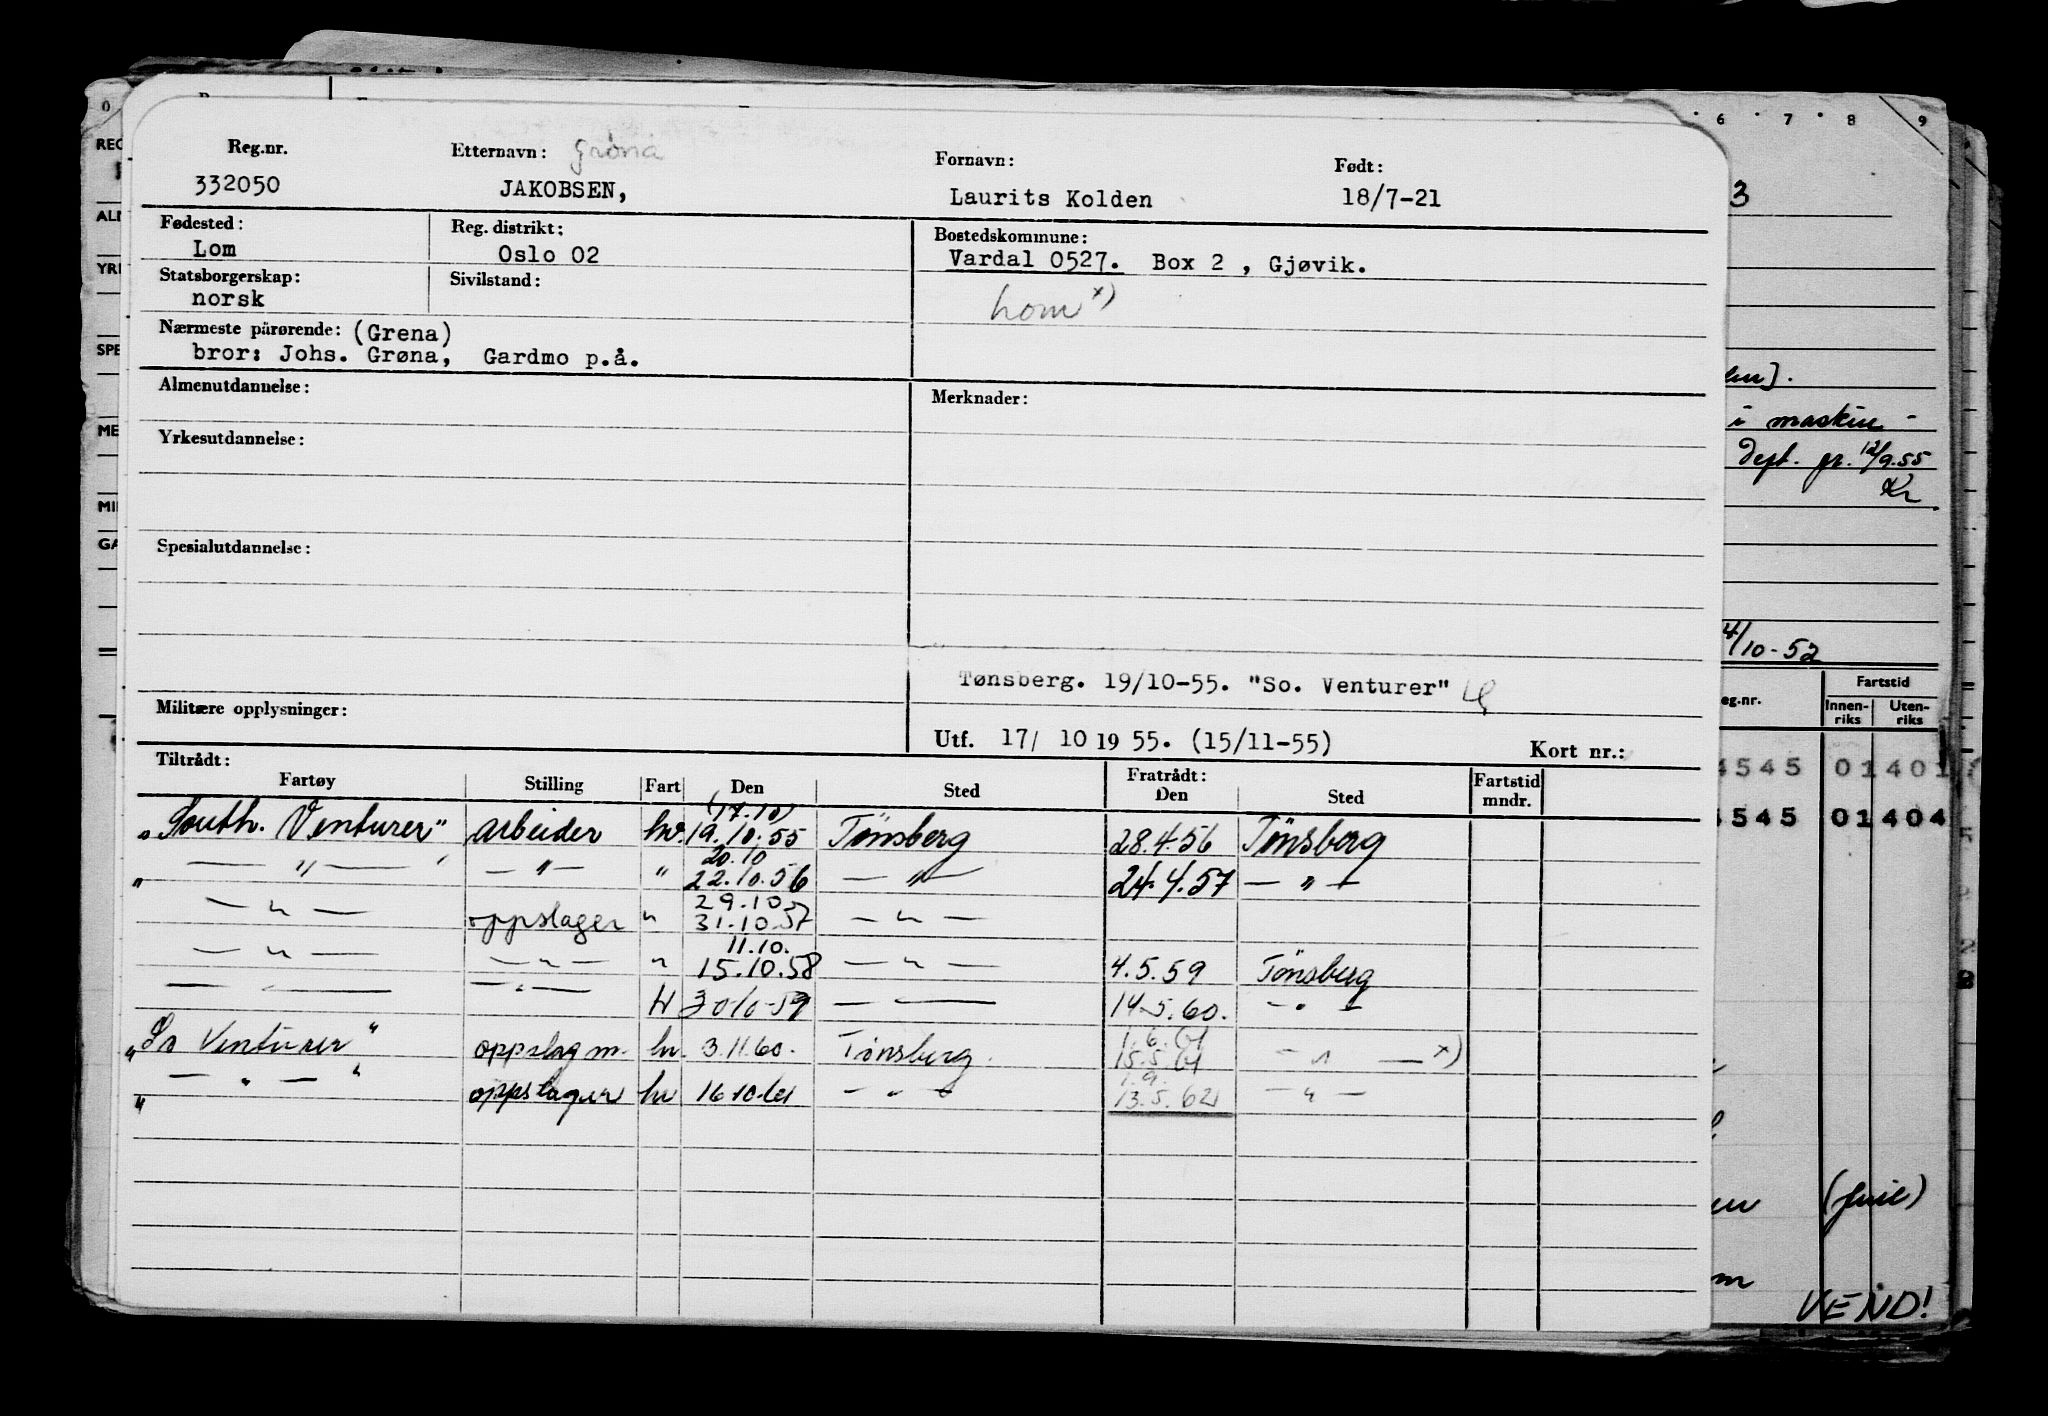 Reg.nr. Etternavn: Grøna Fornavn: Født:
332050 JAKOBSEN, Laurits Kolden 18/7-21
Fødested: Reg. distrikt: Bostedskommune:
Lom Oslo 02 Vardal 0527. Box 2 , Gjøvik.
Statsborgerskap: Sivilstand:
norsk Lom x)
Nærmeste pårørende: (Grena)
bror: Johs. Grøna, Gardmo p.å.
Almenutdannelse: Merknader:
Yrkesutdannelse:
Spesialutdannelse:
Tønsberg. 19/10-55. "So. Venturer"
Militære opplysninger:
Utf. 17/ 10 19 55. (15/11-55) Kort nr.:
Tiltrådt: Fratrådt:
Fartøy Stilling Fart Den Sted Den Sted Fartstid mndr.
(17.10)
"South. Venturer" arbeider hv. 19.10.55 Tønsberg 28.4.56 Tønsberg
20.10
— " — — " — " 22.10.56 — " — 24.4.57 — " —
29.10
— " — oppslager " 31.10.57 — " —
11.10.
— " — — " — " 15.10.58 — " — 4.5.59 Tønsberg
— " — — " — H 30-10-59 — " — 14.5.60. — " —
1.6.61
"So Venturer" oppslag m. hv. 3.11.60. Tønsberg. 15.5.61 — " — x)
1.9.
" — " — " oppslager hv 16.10.61 — " — 13.5.62 — " —
0 6 7 8 9
REG
3
AL
YR
SPE
ME
i maskin
Dept. gr. 12/9.55
Kr
MI
GA
4/10-52
eg.nr. Fartstid
Innen-riks Uten-riks
4545 01 401
4545 01 404
VEND!